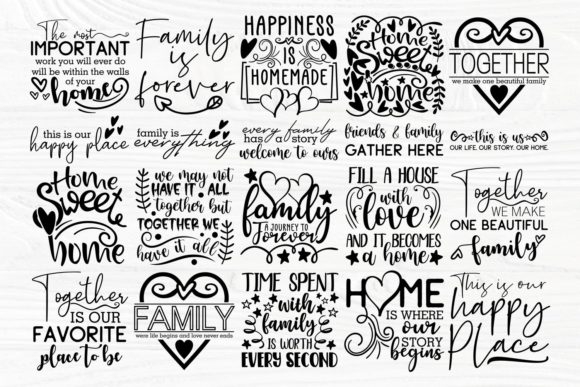 The most
IMPORTANT
work you will ever do
will be within the walls
of your
home
Family
is
forever
HAPPINESS
IS
HOMEMADE
Home
Sweet
home
TOGETHER
we make one beautiful family
this is our
happy place
family is
everything
every family
has a story
welcome to ours
friends & family
GATHER HERE
this is us
OUR LIFE. OUR STORY. OUR HOME.
Home
Sweet
home
we may not
HAVE IT ALL
together but
TOGETHER WE
have it all
family
A JOURNEY TO
Forever
FILL A HOUSE
with
love
AND IT BECOMES
a home
Together
WE MAKE
ONE BEAUTIFUL
family
Together
IS OUR
FAVORITE
place to be
FAMILY
were life begins and love never ends
TIME SPENT
with
family
IS WORTH
EVERY SECOND
HOME
IS WHERE
our
STORY
begins
This is our
happy
Place